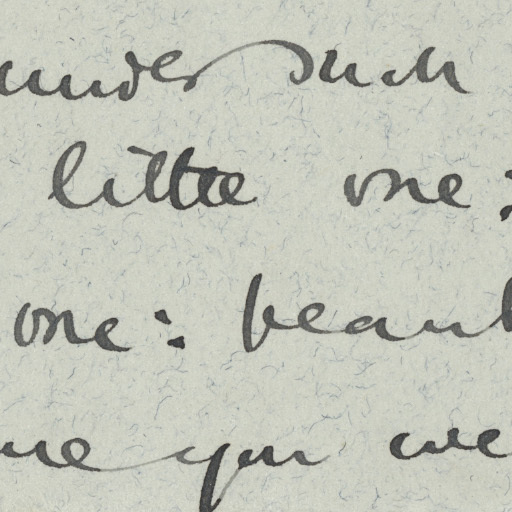 under such
little one:
one: beaut
me you we